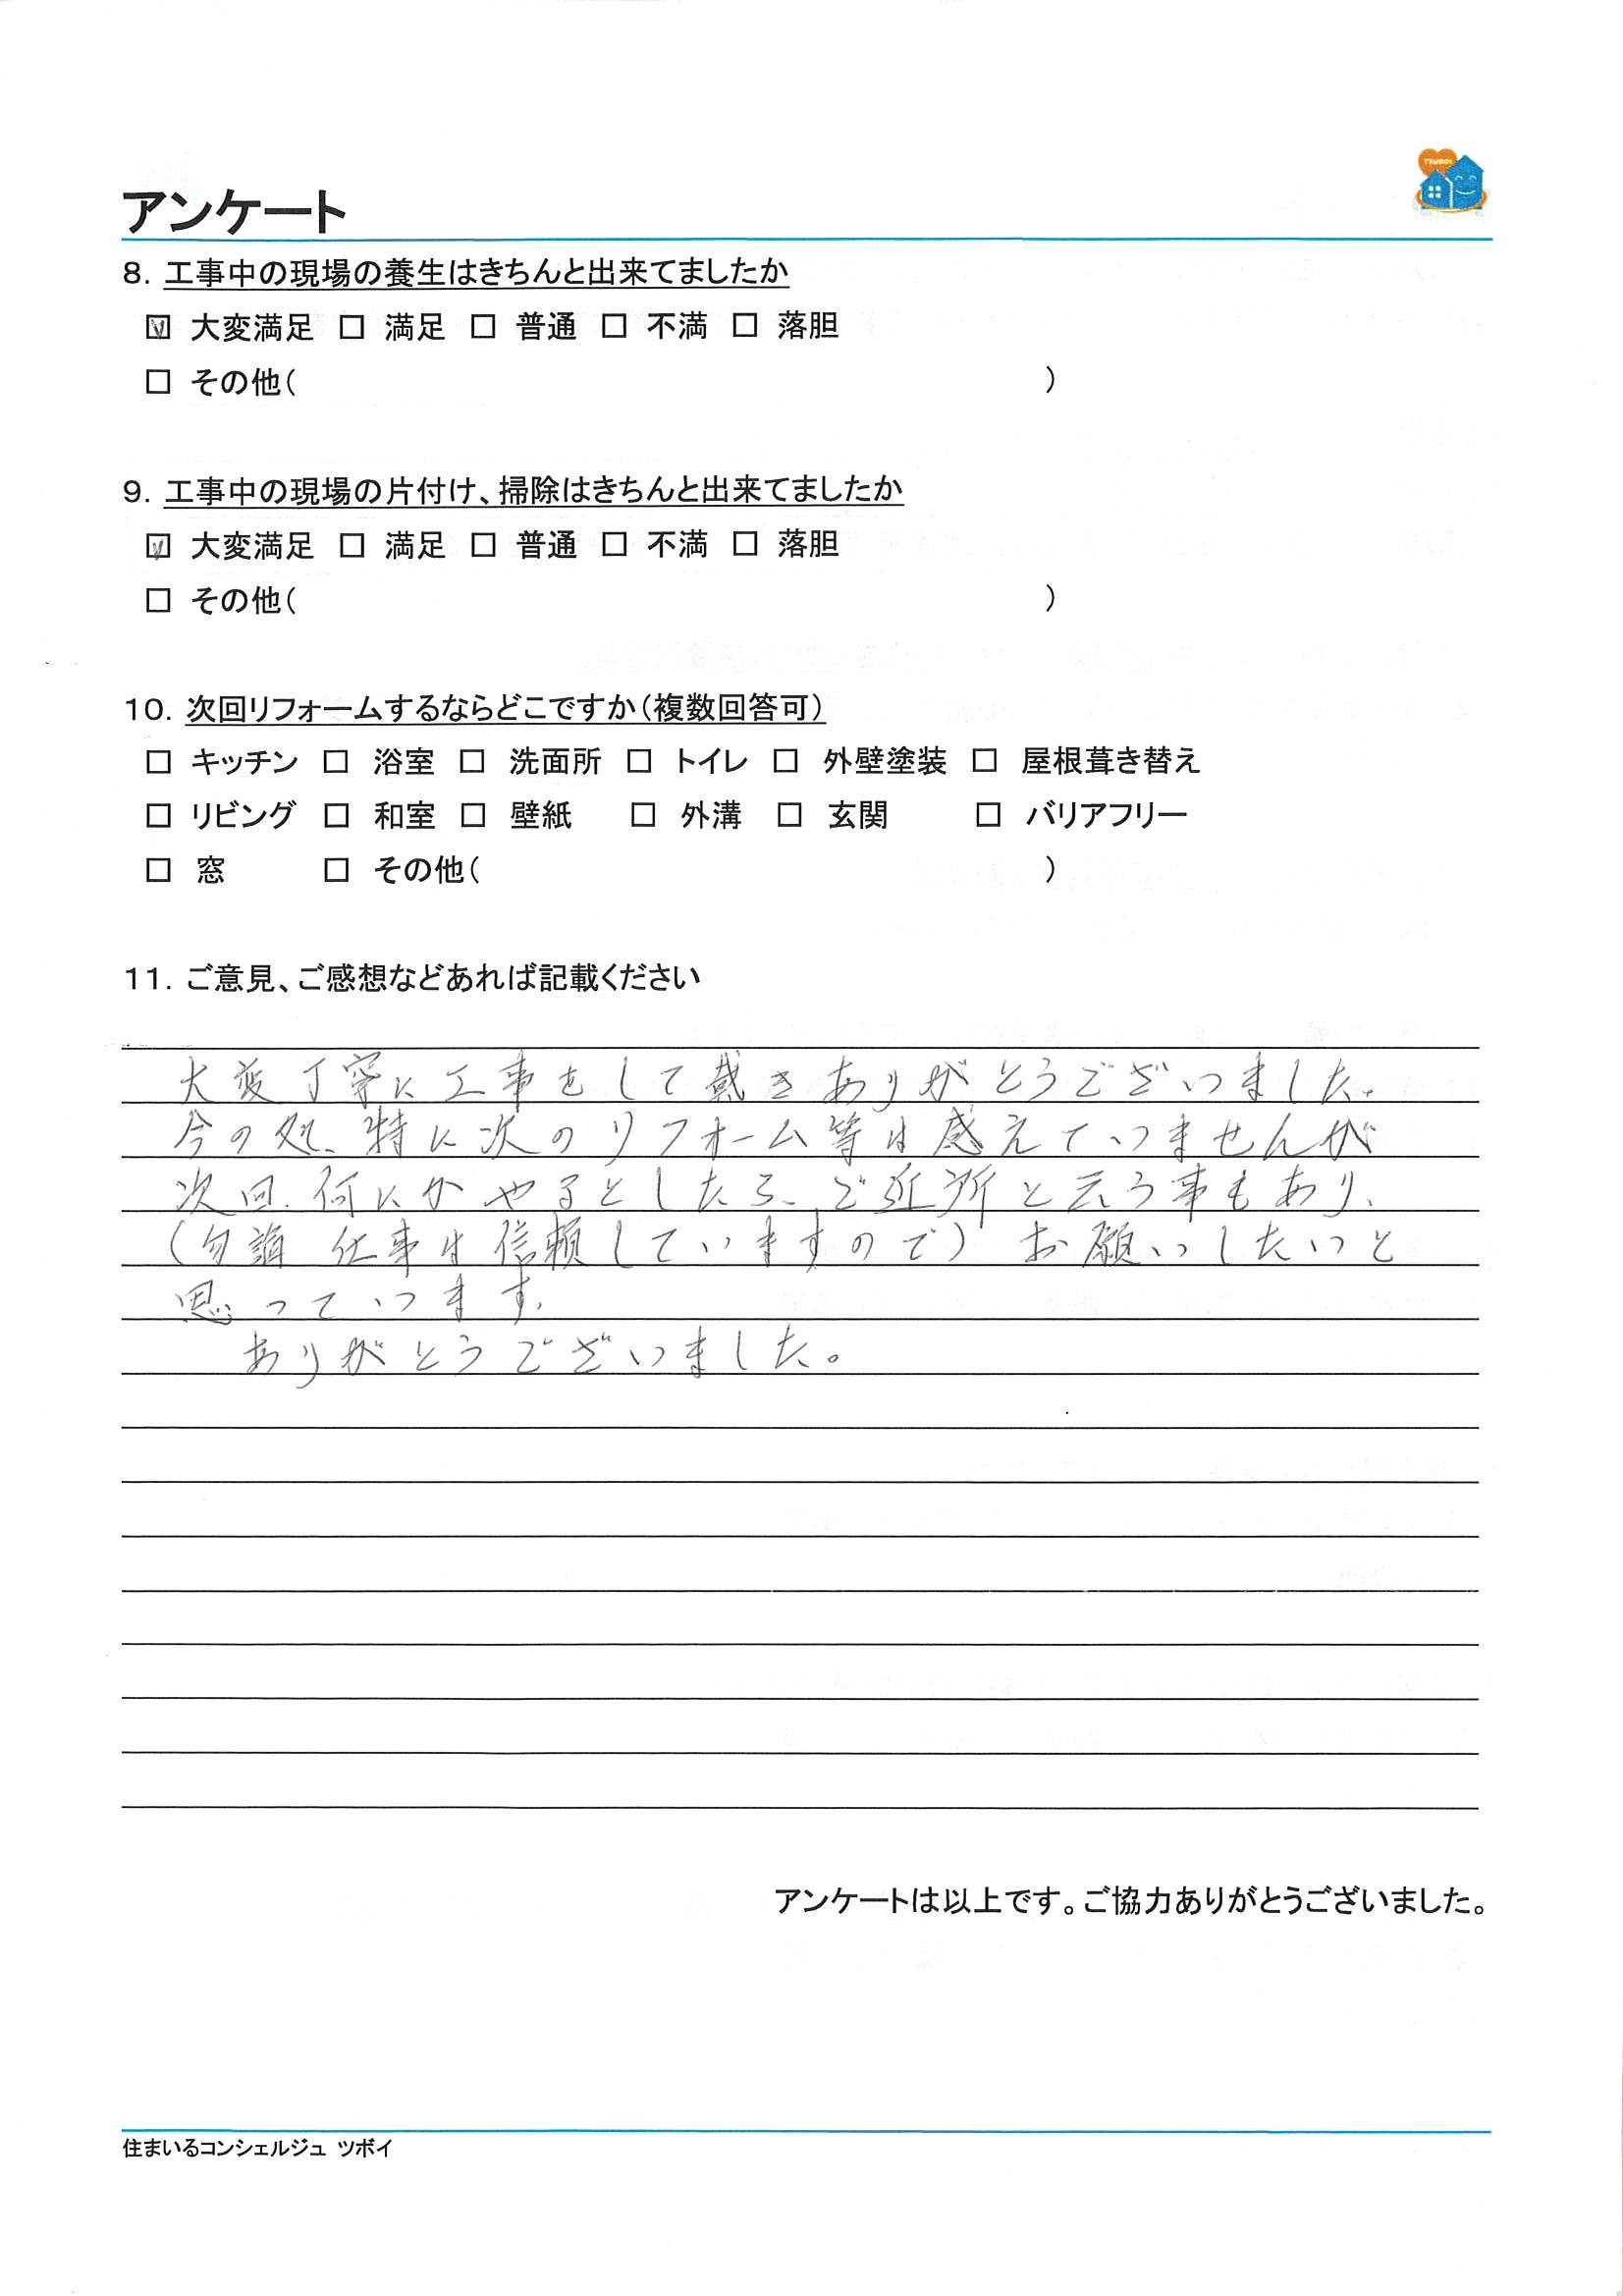 TSUBOI
アンケート
8. 工事中の現場の養生はきちんと出来てましたか
☑ 大変満足 □ 満足 □ 普通 □ 不満 □ 落胆
□ その他( )
9. 工事中の現場の片付け、掃除はきちんと出来てましたか
☑ 大変満足 □ 満足 □ 普通 □ 不満 □ 落胆
□ その他( )
10. 次回リフォームするならどこですか(複数回答可)
□ キッチン □ 浴室 □ 洗面所 □ トイレ □ 外壁塗装 □ 屋根葺き替え
□ リビング □ 和室 □ 壁紙 □ 外溝 □ 玄関 □ バリアフリー
□ 窓 □ その他( )
11. ご意見、ご感想などあれば記載ください
大変丁寧に工事をして戴きありがとうございました。
今の処、特に次のリフォーム等は感えていませんが
次回、何にかやるとしたら、ご近所と云う事もあり、
(勿論 仕事は信頼していますので) お願いしたいと
思っています。
ありがとうございました。
アンケートは以上です。ご協力ありがとうございました。
住まいるコンシェルジュ ツボイ